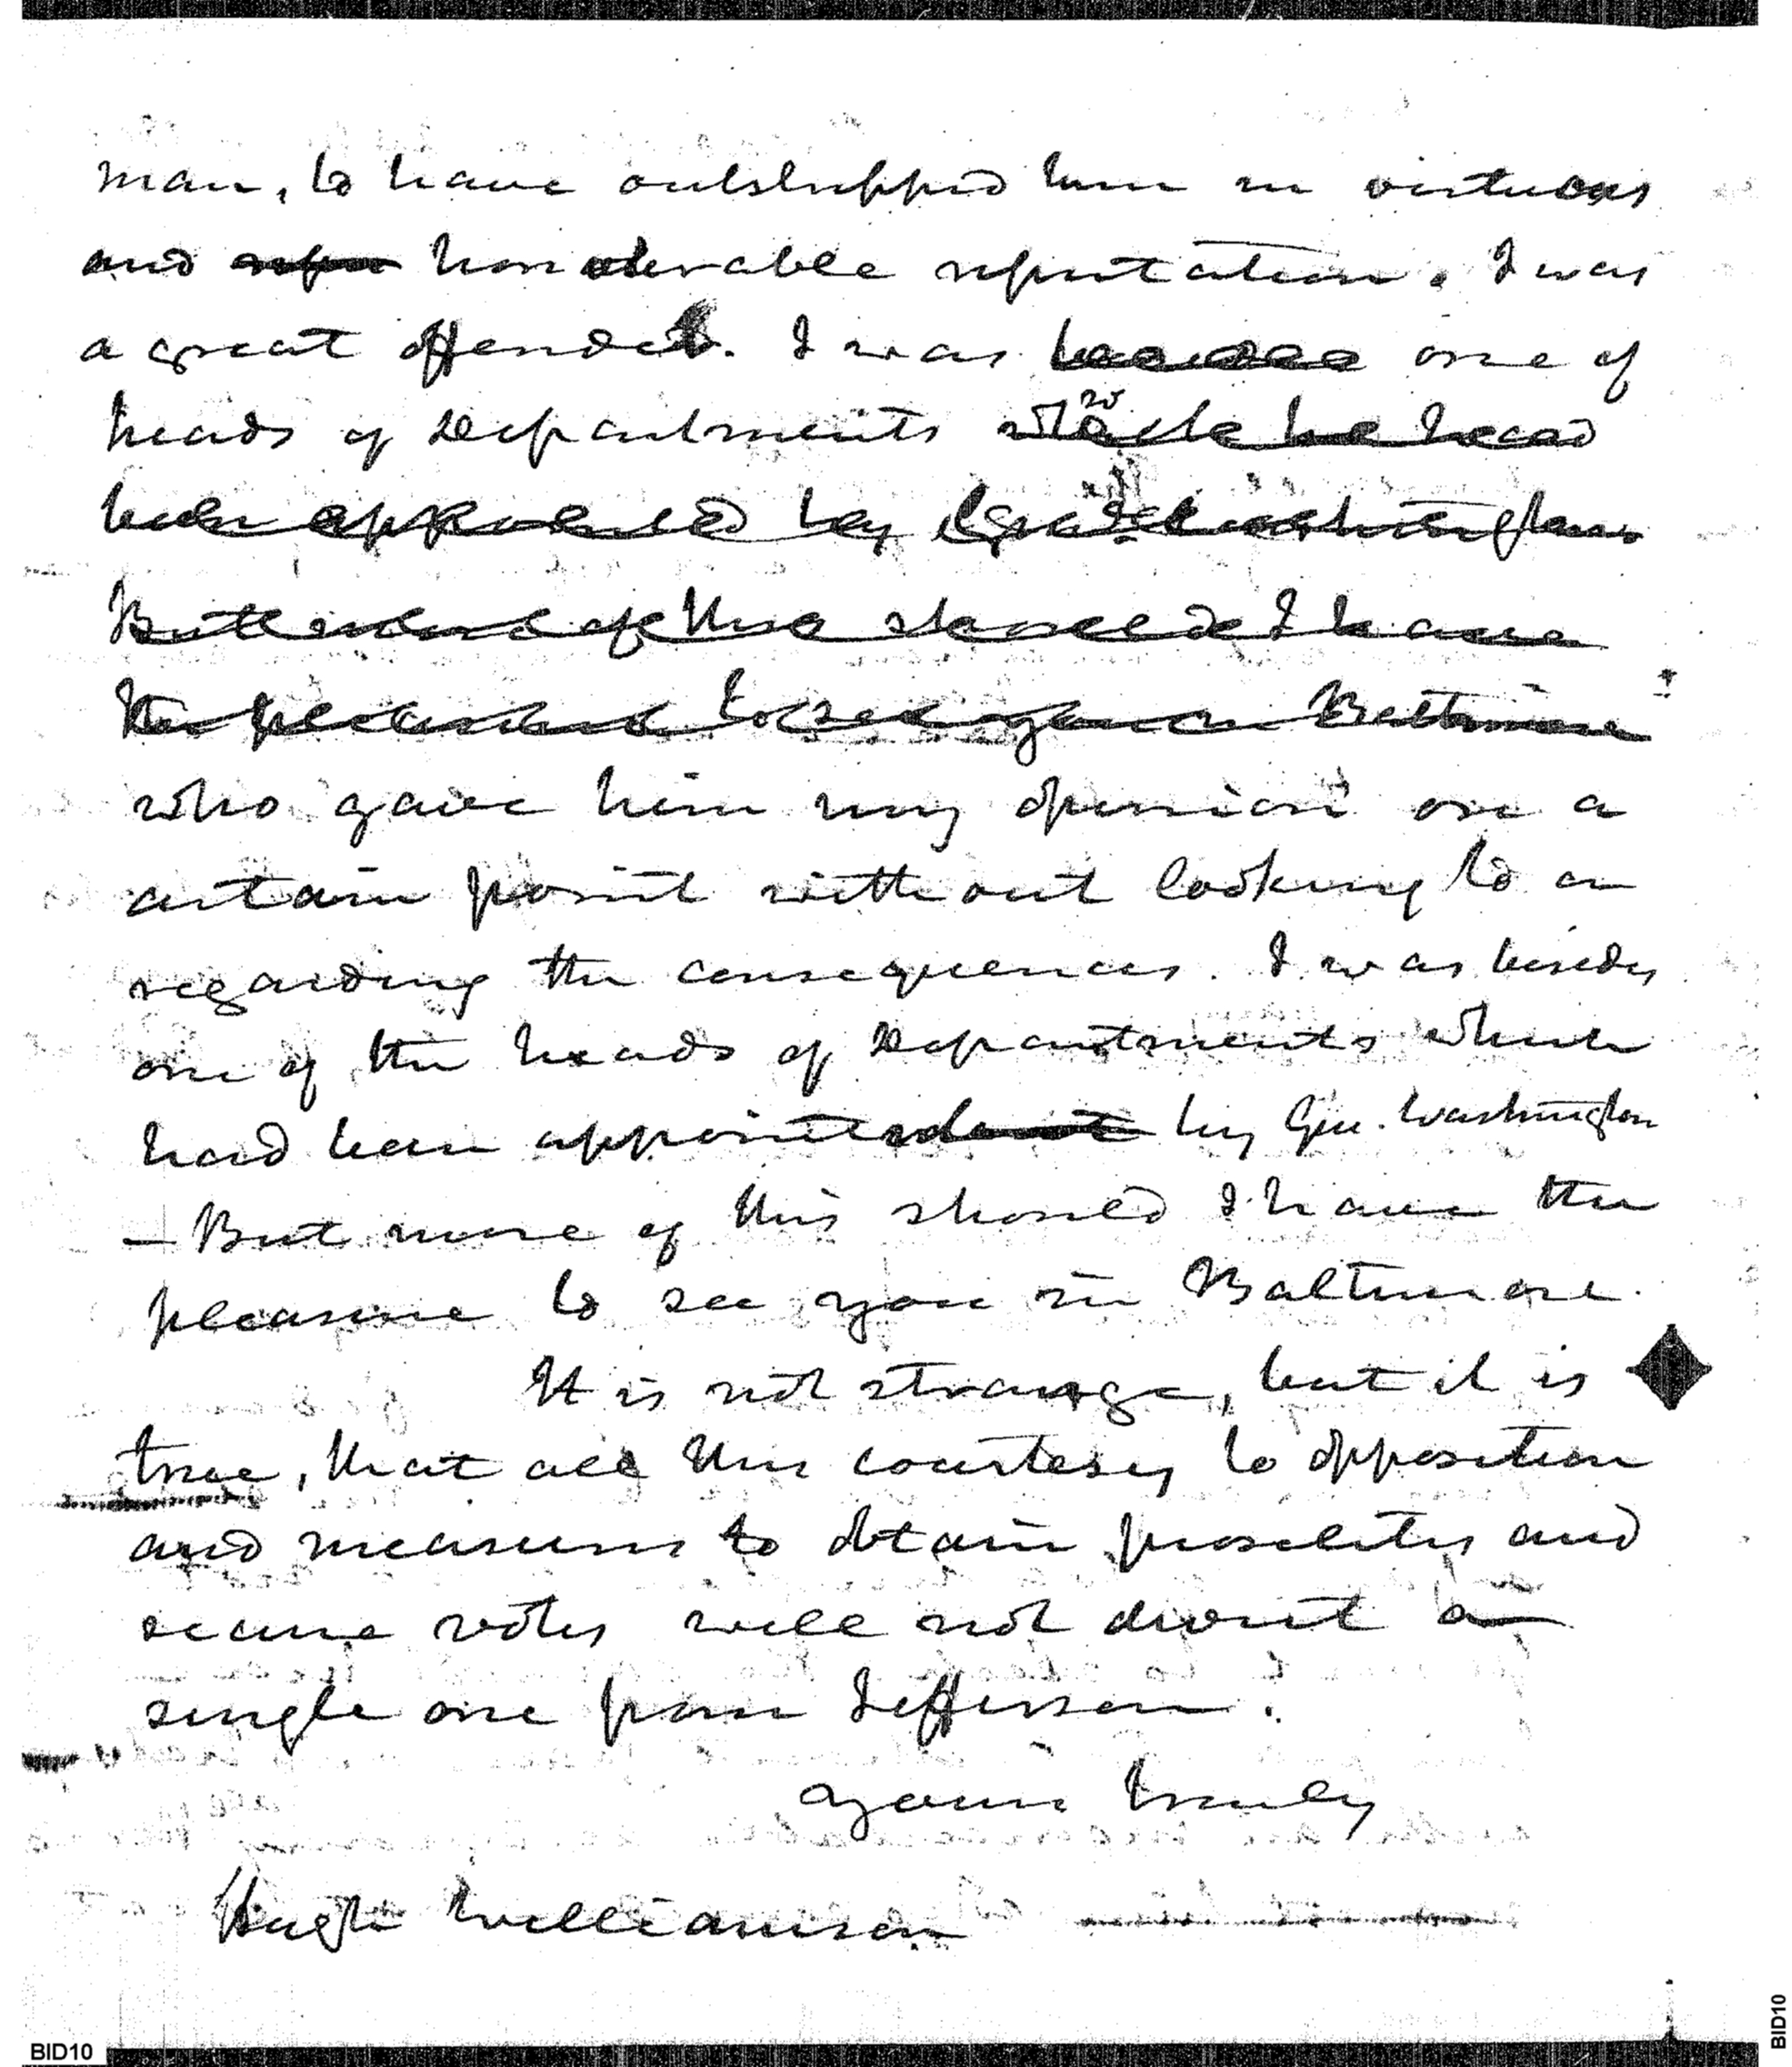 man, to have outstripped him in virtuous
and honorable reputation. I was
a great offender. I was one of
heads of Departments which he had
been appointed by Gen. Washington
But more of this should I have
the pleasure to see you in Baltimore
who gave him my opinion on a
certain point without looking to or
regarding the consequences. I was besides
one of the heads of Departments which
had been appointed by Gen. Washington
— But more of this should I have the
pleasure to see you in Baltimore.
It is not strange, but it is
true, that all this courtesy to opposition
and measures to obtain proselites and
secure votes will not divert a
single one from Jefferson.
Yours truly
Hugh Williamson
BID10
BID10